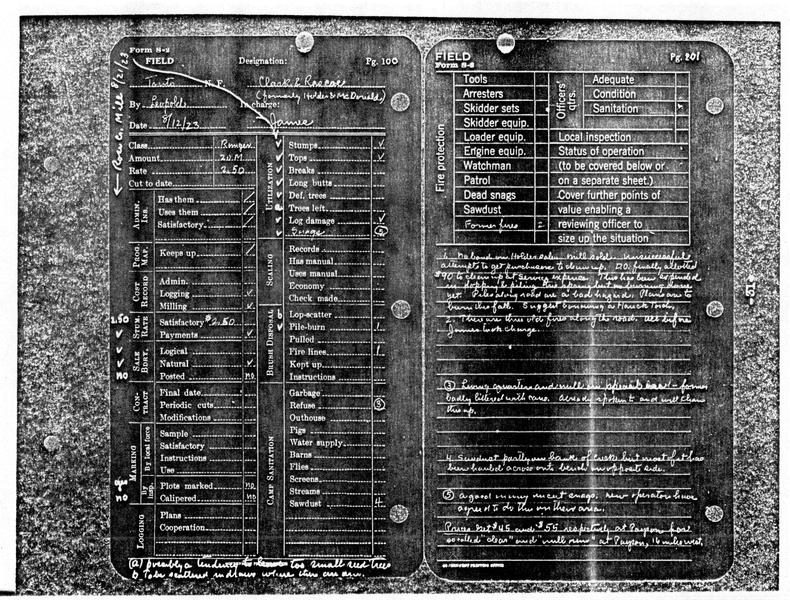 Form 8-2
FIELD
Designation:
Pg. 100
Tonto N.F.
Clark & Roscoe
(formerly Holder & McDonald)
By Leopold
In charge:
Date 8/12/23
James
8/21/23
Class
Amount 20 M
Rate 2.50
Cut to date
ADMIN. INS.
Has them
Uses them
Satisfactory
PROG. MAP.
Keeps up
COST RECORD
Admin.
Logging
Milling
STUM. RATE
2.50 Satisfactory $2.50
Payments
SALE BDRY.
Logical
Natural
no Posted no
CONTRACT
Final date
Periodic cuts
Modifications
MARKING
By local force
Sample
Satisfactory
Instructions
Use
By insp.
Plots marked no
no Calipered no
LOGGING
Plans
Cooperation
UTILIZATION
Stumps
Tops
Breaks
Long butts
Def. trees
Trees left
Log damage
Snags 5
SCALING
Records
Has manual
Uses manual
Economy
Check made
BRUSH DISPOSAL
b Lop-scatter
Pile-burn 1
Pulled
Fire lines 1
Kept up
Instructions
CAMP SANITATION
Garbage
Refuse 3
Outhouse
Pigs
Water supply
Barns
Flies
Screens
Streams
Sawdust 4
(a) possibly a tendency to leave too small seed trees
b to be scattered in draws where there are any.
FIELD
Form 8-2
Pg. 201
Fire protection
Tools
Arresters
Skidder sets
Skidder equip.
Loader equip.
Engine equip.
Watchman
Patrol
Dead snags
Sawdust
Former fires 2
Officers' qtrs.
Adequate
Condition
Sanitation
Local inspection
Status of operation
(to be covered below or
on a separate sheet.)
Cover further points of
value enabling a
reviewing officer to
size up the situation
1. No bond on Holder sale. Mill sold. Unsuccessful
attempts to get purchasers to clean up. D.O. finally allotted
$90 to clean up at Service expense. This has been expended
in lopping & piling this spring but no burning done
yet. Piles along road are a bad hazard. Plans are to
burn this fall. Suggest burning as
There are three old fires along the road. All before
James took charge.
3 Living quarters and mill
badly littered with cans. Already spoken to and will clean
this up.
4. Sawdust partly on bank of creek but most of it has
been hauled across onto bench on opposite side.
5 a good many uncut snags, new operators have
agreed to do this on their area.
Prices get $45 and $55 respectively at Payson for
so called "clear" and "mill run" at Payson, 16 miles west.
-51-